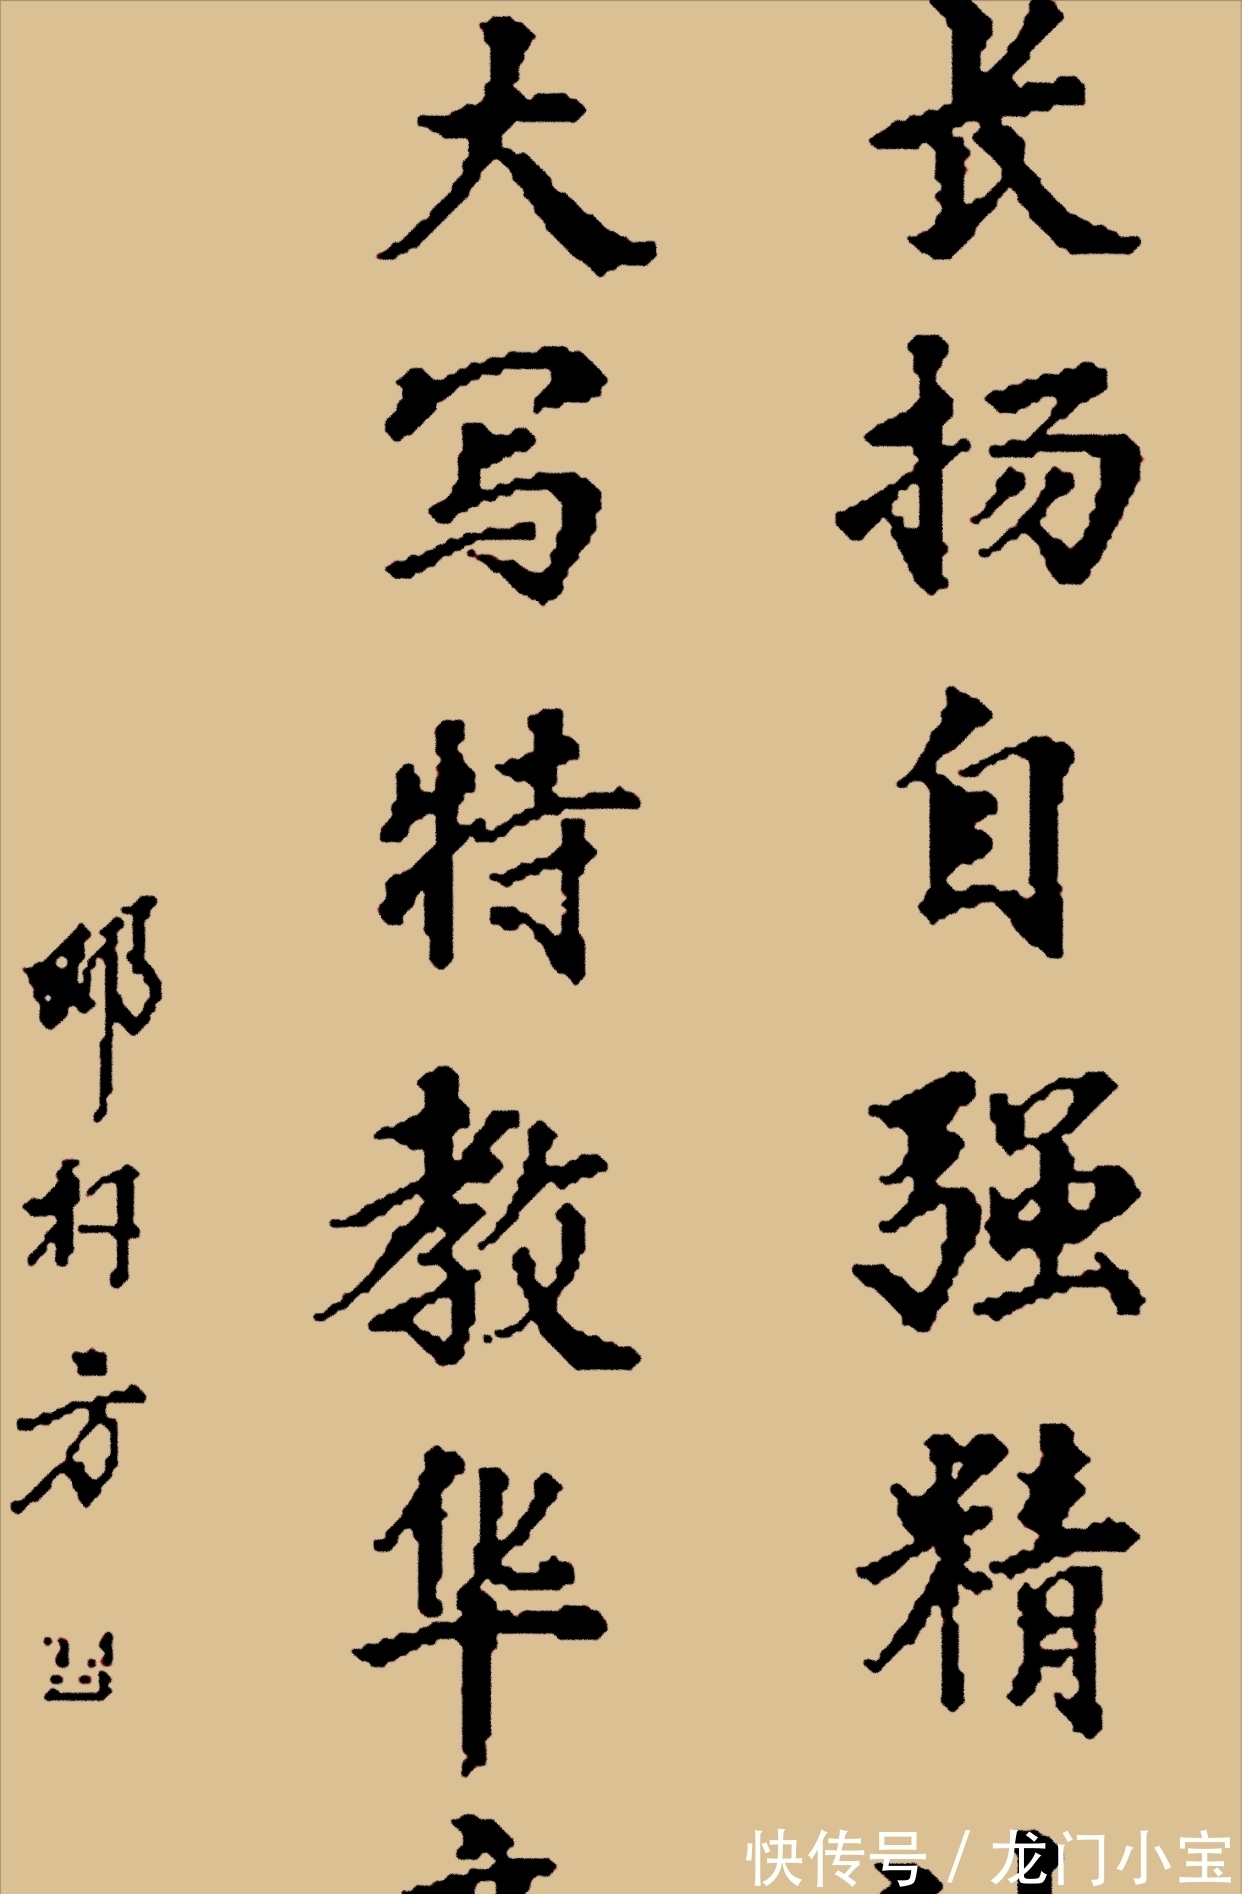 长扬自强精
大写特教华
邓朴方
快传号 / 龙门小宝